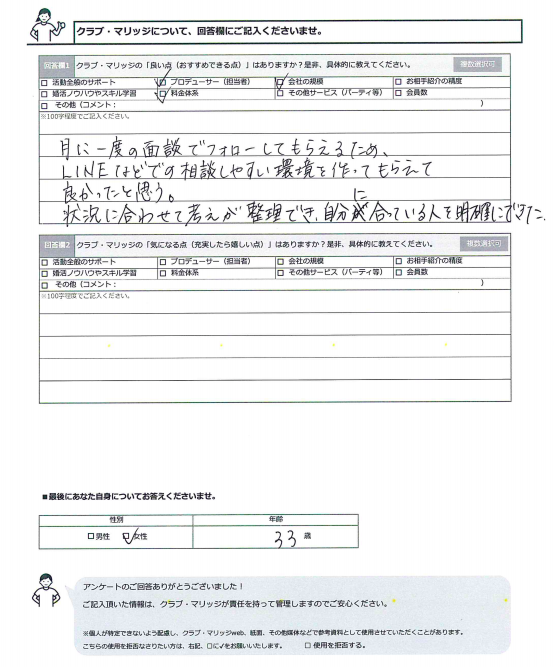 クラブ・マリッジについて、回答欄にご記入くださいませ。
回答欄1 クラブ・マリッジの「良い点（おすすめできる点）」はありますか？是非、具体的に教えてください。 複数選択可
□ 活動全般のサポート ☑ プロデューサー（担当者） ☑ 会社の規模 □ お相手紹介の精度
□ 婚活ノウハウやスキル学習 ☑ 料金体系 □ その他サービス（パーティ等） □ 会員数
□ その他（コメント： ）
※100字程度でご記入ください。
月に一度の面談でフォローしてもらえるため、
LINEなどでの相談しやすい環境を作ってもらえて
良かったと思う。
状況に合わせて考えが整理でき、自分に合っている人を明確にできた。
回答欄2 クラブ・マリッジの「気になる点（充実したら嬉しい点）」はありますか？是非、具体的に教えてください。 複数選択可
□ 活動全般のサポート □ プロデューサー（担当者） □ 会社の規模 □ お相手紹介の精度
□ 婚活ノウハウやスキル学習 □ 料金体系 □ その他サービス（パーティ等） □ 会員数
□ その他（コメント： ）
※100字程度でご記入ください。
■最後にあなた自身についてお答えくださいませ。
性別 年齢
□男性 ☑女性 33 歳
アンケートのご回答ありがとうございました！
ご記入頂いた情報は、クラブ・マリッジが責任を持って管理しますのでご安心ください。
※個人が特定できないよう配慮し、クラブ・マリッジweb、紙面、その他媒体などで参考資料として使用させていただくことがあります。
こちらの使用を拒否なさりたい方は、右記、□に✓をお願いいたします。 □ 使用を拒否する。